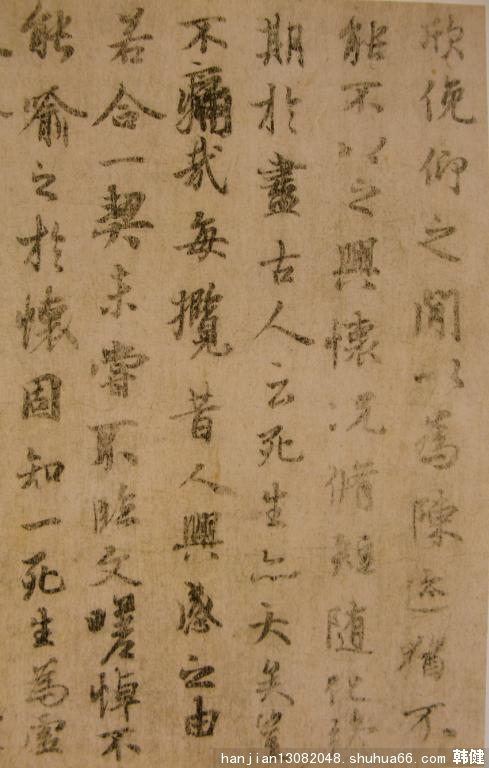 欣俛仰之閒以為陳迹猶不
能不以之興懷況脩短随化終
期於盡古人云死生亦大矣豈
不痛哉每攬昔人興感之由
若合一契未嘗不臨文嗟悼不
能喻之於懷固知一死生為虛
hanjian13082048.shuhua66.com 韩健